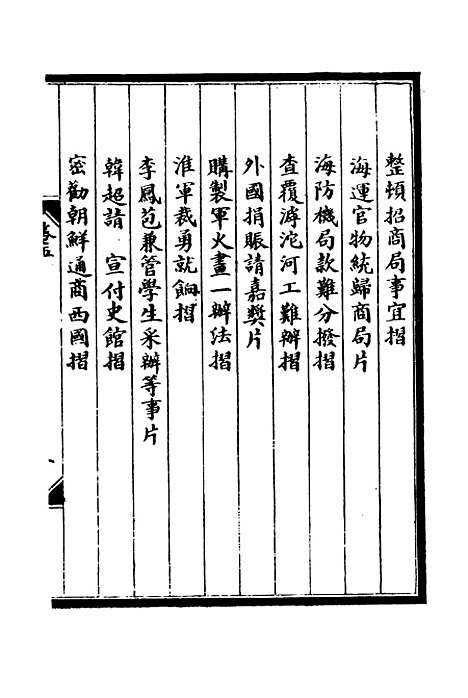 整頓招商局事宜摺
海運官物統歸商局片
海防機局款難分撥摺
查覆滹沱河工難辦摺
外國捐賑請嘉獎片
購製軍火畫一辦法摺
淮軍裁勇就餉摺
李鳳苞兼管學生采辦等事片
韓超請 宣付史館摺
密勸朝鮮通商西國摺